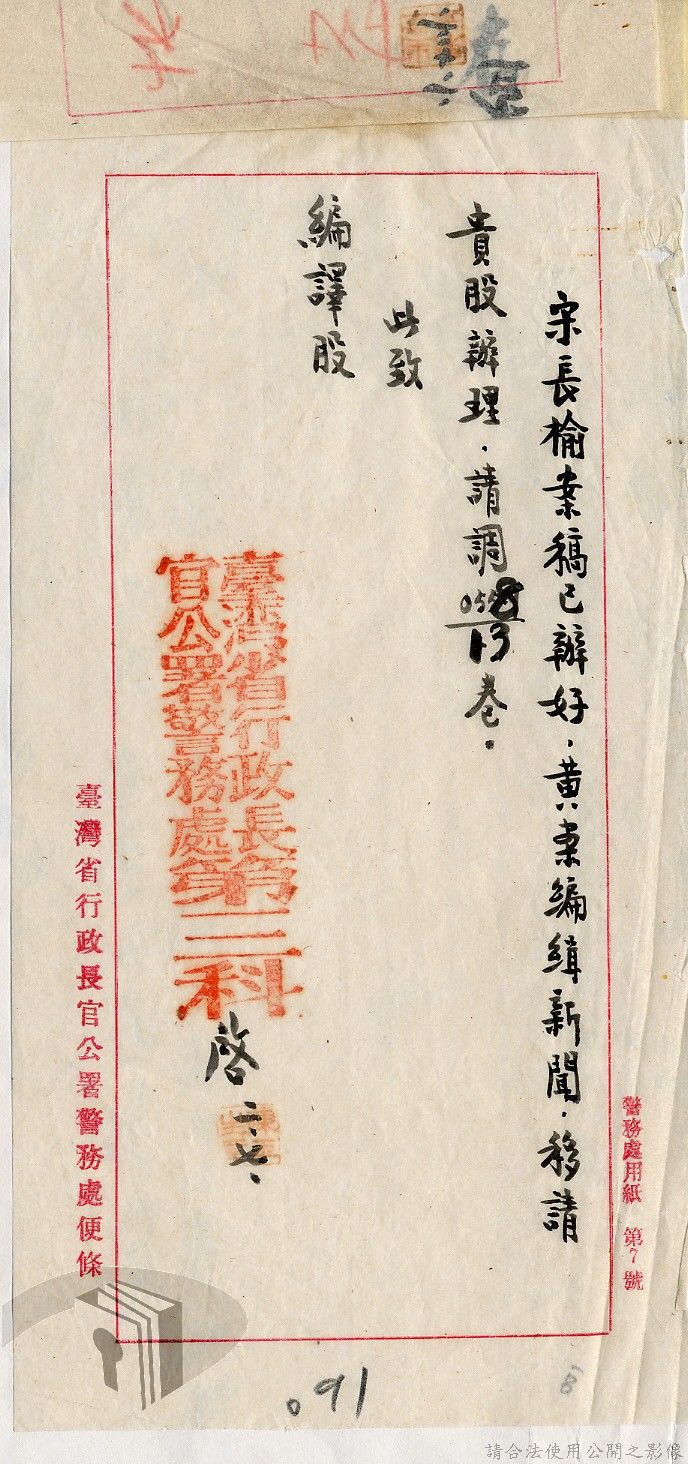 警務處用紙 第7號
宋長榆案稿已辦好，黃案編緝新聞，移請
貴股辦理．請調0558/13卷．
此致
編譯股
臺灣省行政長
官公署警務處第三科
啓 二、七、
臺灣省行政長官公署警務處便條
091
8
請合法使用公開之影像